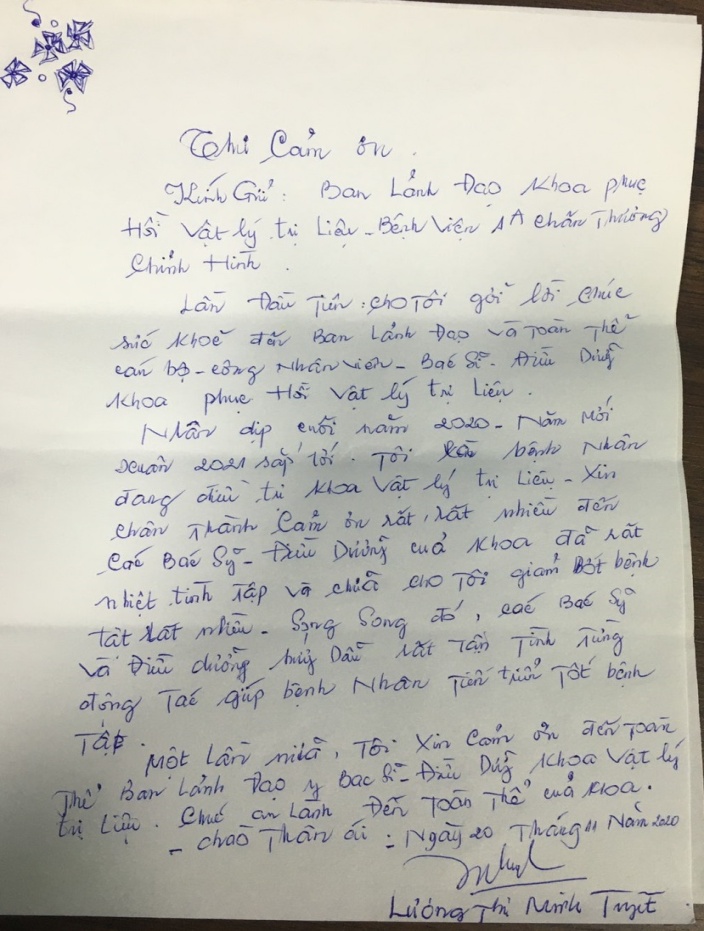 Thư Cảm ơn.
Kính Gửi: Ban Lảnh Đạo Khoa phục
Hồi Vật lý trị Liệu - Bệnh Viện 1A Chấn Thương
Chỉnh Hình.
Lần Đầu Tiên: cho Tôi gởi lời chúc
sức khoẻ đến Ban Lảnh Đạo và Toàn Thể
cán bộ - công Nhân viên - Bác Sĩ - Điều Dưỡng
Khoa phục Hồi Vật lý trị Liệu.
Nhân dịp cuối năm 2020 - Năm mới
xuân 2021 sắp tới. Tôi là bệnh Nhân
đang điều trị Khoa Vật lý trị Liệu - Xin
chân Thành Cảm ơn rất, rất nhiều đến
Các Bác Sỹ - Điều Dưỡng cuả Khoa đã rất
nhiệt tình Tập và chữa cho Tôi giảm Bớt bệnh
tật rất nhiều - Song Song đó, các Bác Sỹ
và Điều dưỡng Dẫn rất Tận Tình Từng
động Tác giúp bệnh Nhân Tiến triển Tốt bệnh
Tật.
Một Lần nữa, Tôi Xin Cảm ơn đến Toàn
Thể Ban Lảnh Đạo y Bác Sĩ - Điều Dưỡng Khoa Vật lý
trị Liệu. Chúc an Lành Đến Toàn Thể cuả Khoa.
- chào Thân ái - Ngày 20 Tháng 11 Năm 2020
Lương Thị Minh Tuyết